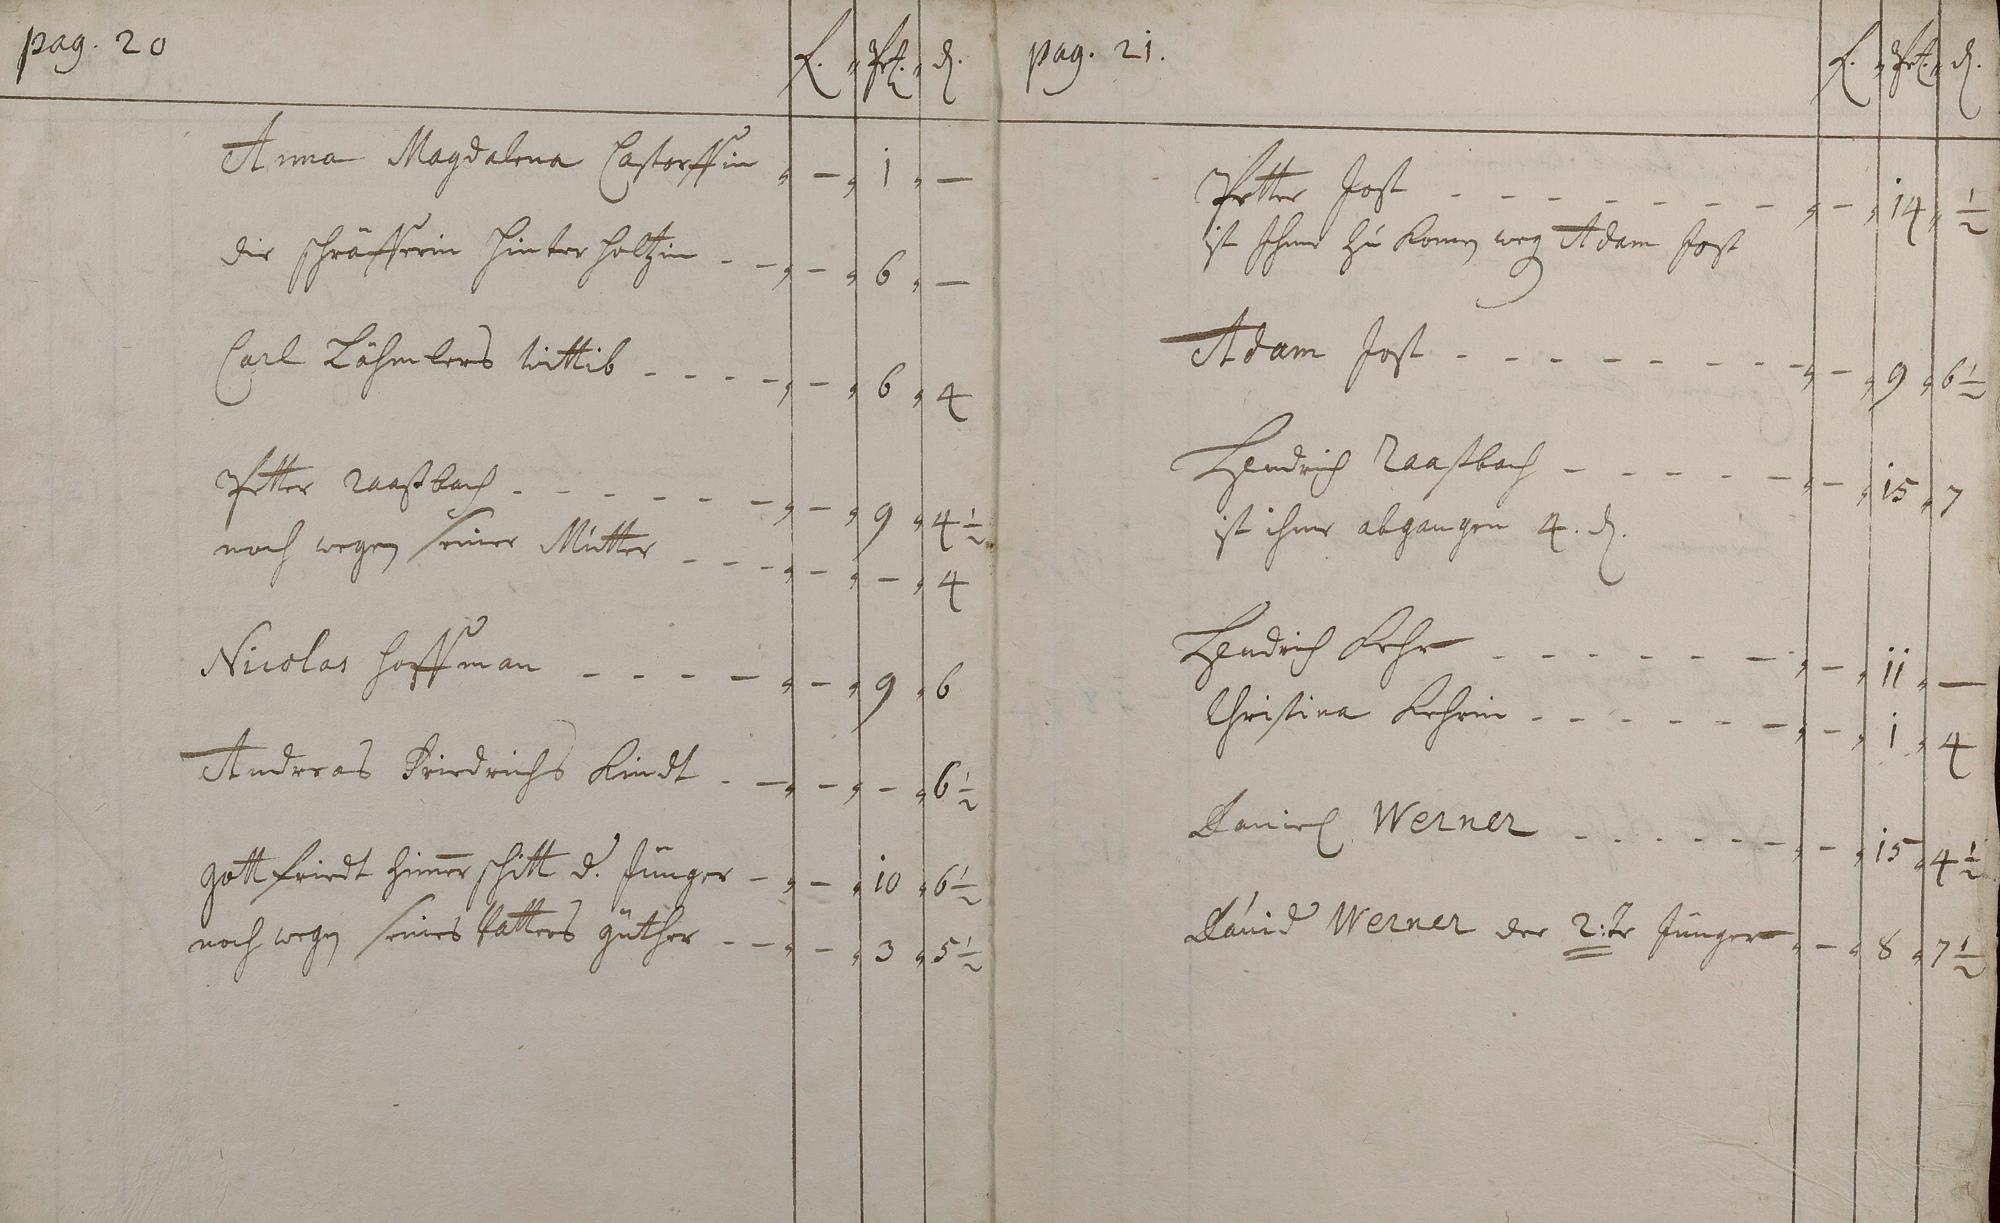 pag. 20
f. " Prt. " d.
Anna Magdalena Castorffin " — " 1 " —
die schräfferin Hinterholtzin - - " — " 6 " —
Carl Löhmlers Wittib - - - - " — " 6 " 4
Petter Raaßbach - - - - - - " — " 9 " 4½
noch wegen seiner Mutter - - - " — " — " 4
Nicolas Hoffman - - - - " — " 9 " 6
Andreas Friedrichs Kindt - - " — " — " 6½
gottfriedt Himerschitt d. Jünger - " — " 10 " 6½
noch wegen seines Vatters güther - - " — " 3 " 5½
pag. 21.
f. " Prt. " d.
Petter Jost - - - - - - - - " — " 14 " ½
ist Ihme zu Komen weg Adam Jost
Adam Jost - - - - - - - - " — " 9 " 6½
Hendrich Raaßbach - - - - - " — " 15 " 7
ist ihme abgangen 4. d.
Hendrich Kehr - - - - - - " — " 11 " —
Christina Kehrin - - - - - - " — " 1 " 4
Daniel Werner - - - - - - " — " 15 " 4½
David Werner der 2:te Jünger " — " 8 " 7½